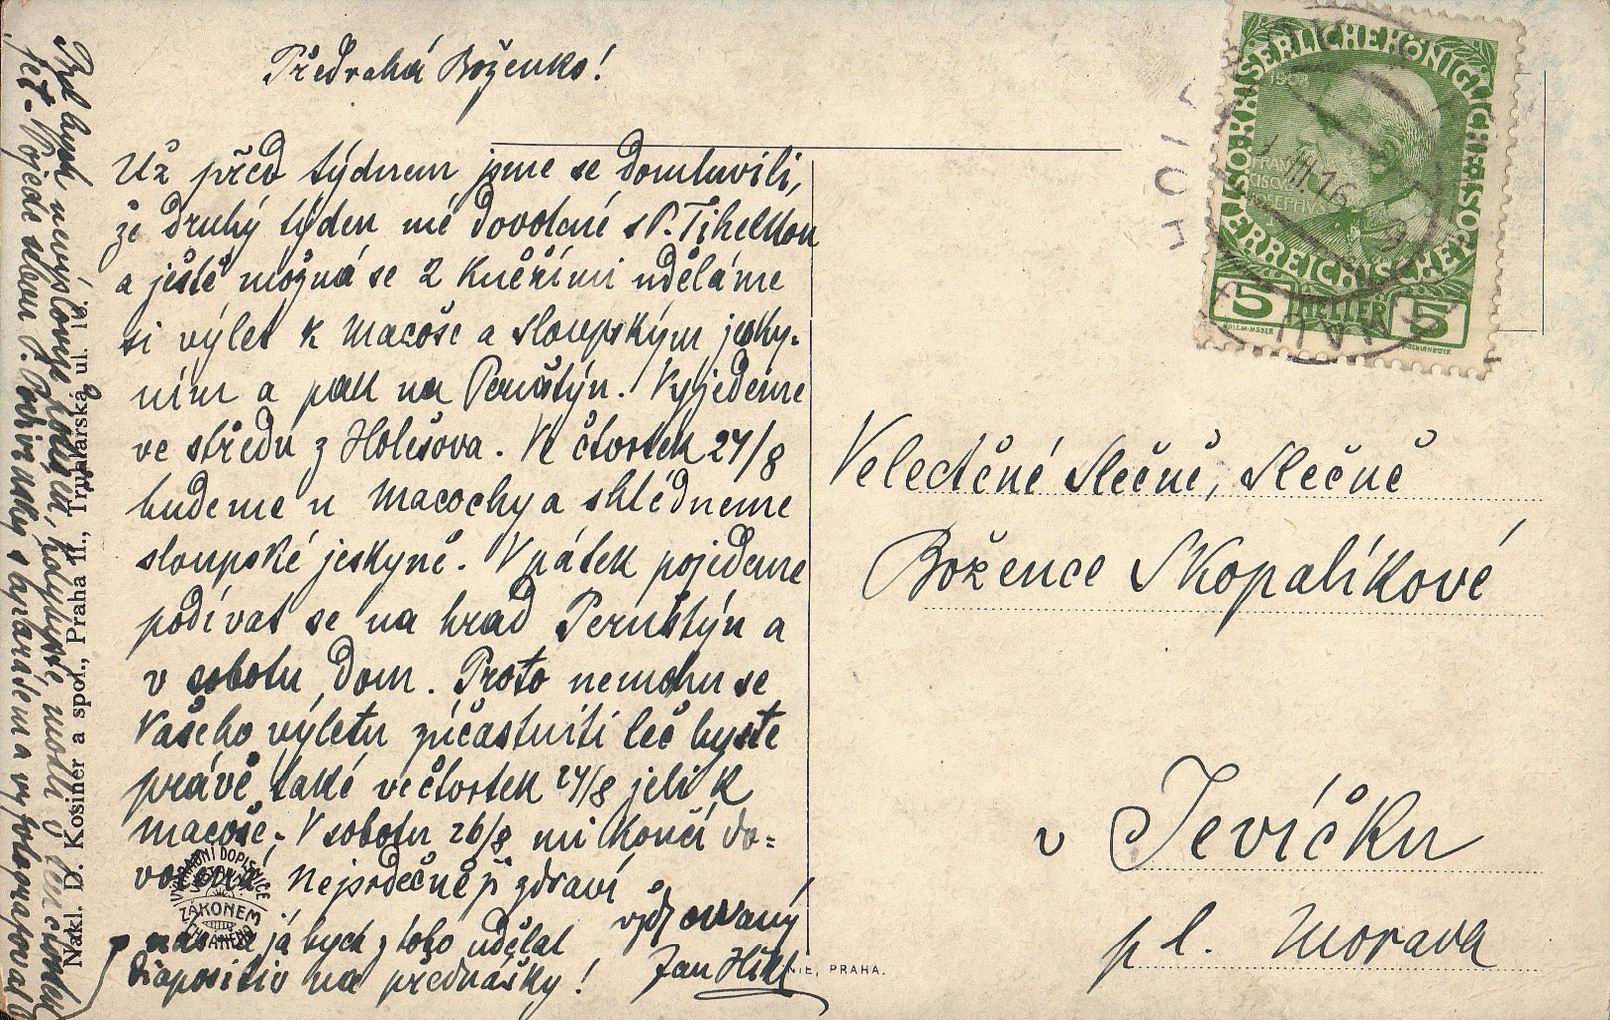 Předrahá Boženko!
Už před týdnem jsme se domluvili,
že druhý týden mé dovolené s P. Tihelkou
a ještě možná se 2 kněžími uděláme
si výlet k Macoše a sloupským jesky-
ním a pak na Pernštýn. Vyjedeme
ve středu z Holešova. Ve čtvrtek 24/8
budeme u Macochy a shlédneme
sloupské jeskyně. V pátek pojedeme
podívat se na hrad Pernštýn a
v sobotu dom. Proto nemohu se
Vašeho výletu zúčastniti leč byste
právě také ve čtvrtek 24/8 jeli k
Macoše. V sobotu 26/8 mi končí do-
volená. Nejsrdečněji zdraví
oddaný
Jan
nás a já bych z toho udělal
diapositiv na přednášky!
Rád bych
jet. Pojede
s aparátem a vyfotografoval
Nakl. D. Kosiner a spol., Praha II., Truhlářská ul. 16.
ZÁKONEM
CHRÁNĚNO
PRAHA.
KAISERLICHE KÖNIGLICHE
ÖSTERREICHISCHE POST
1908
5 HELLER 5
III. 16
Velectěné slečně, slečně
Božence Skopalíkové
v Jevíčku
pl. Morava